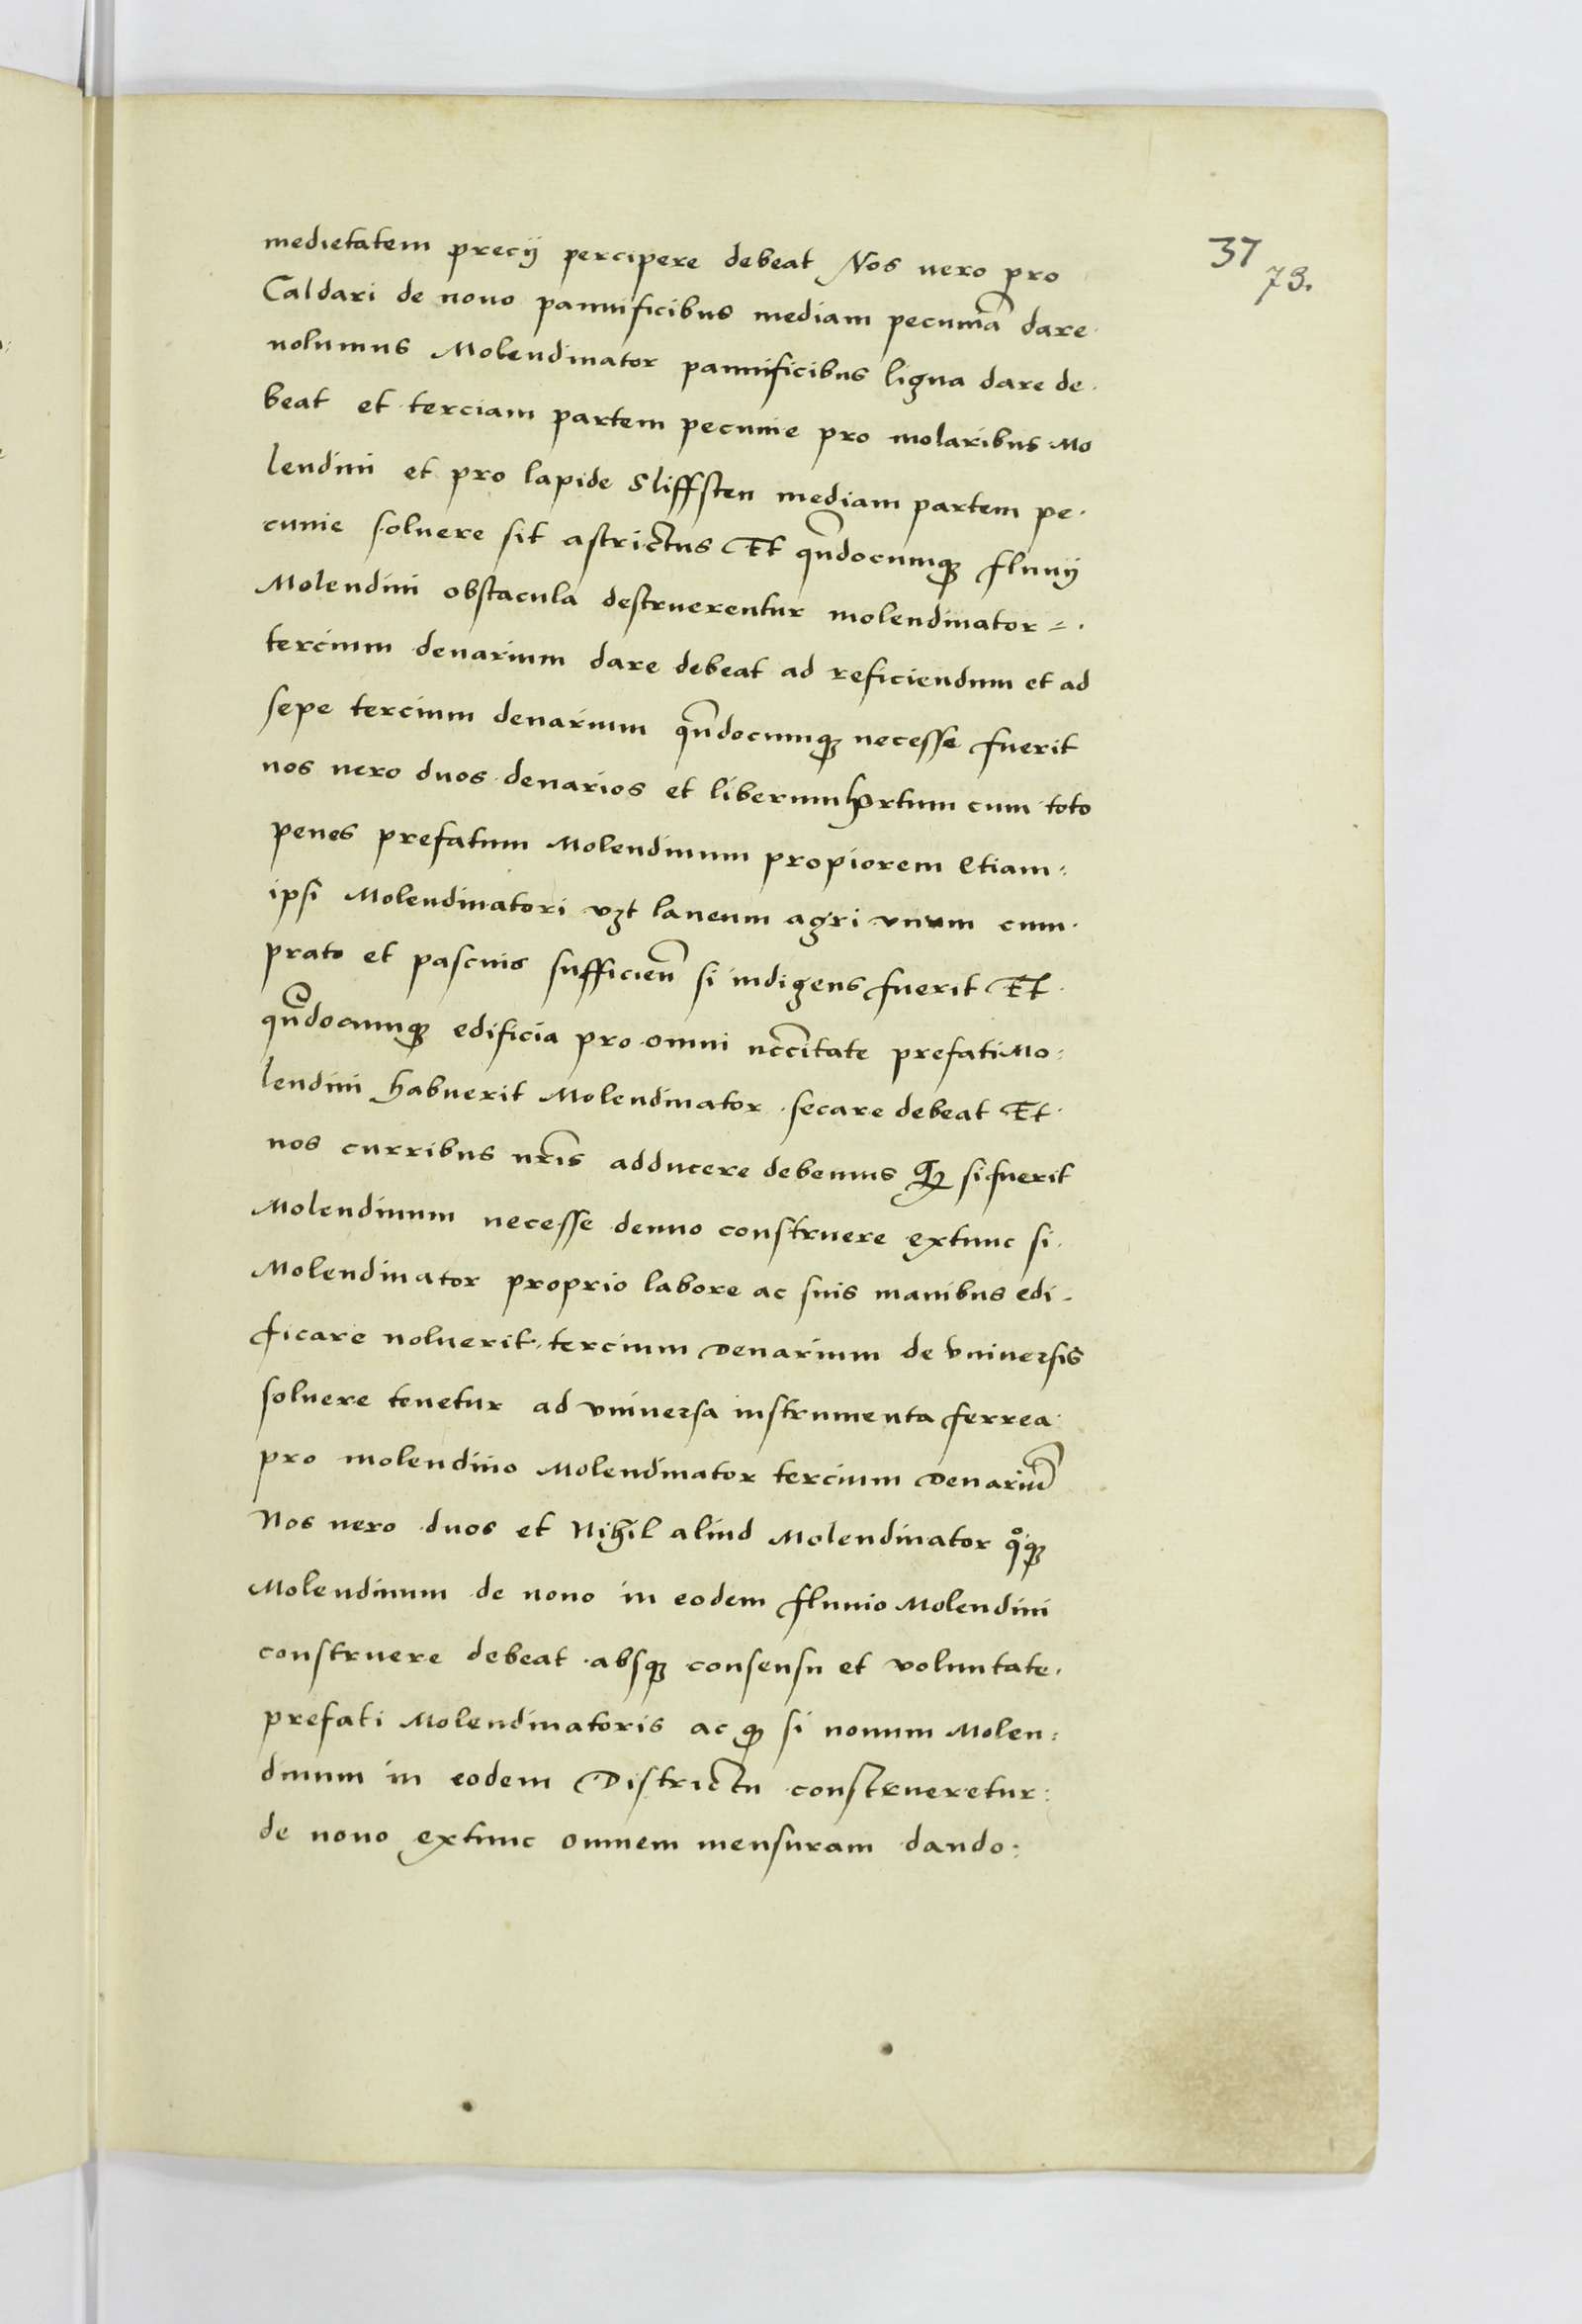 medietatem precij percipere debeat Nos uero pro
37
73.
Caldari de nouo pannificibus mediam pecuniã dare
uolumus Molendinator pannificibus ligna dare de
beat et terciam partem pecunie pro molaribus Mo
lendini et pro lapide Sliffsten mediam partem pe
cunie soluere sit astrictus Et qñdocumqꝫ fluuij
Molendini obstacula destruerentur molendinator =
tercium denarium dare debeat ad reficiendum et ad
sepe tercium denarium qñdocumqꝫ necesse fuerit
nos uero duos denarios et liberum hortum cum toto
penes prefatum Molendinum propiorem Etiam:
ipsi Molendinatori vꝫt laneum agri vnum cum
prato et pascuis sufficieñ si indigens fuerit Et
qñdocumqꝫ edificia pro omni nc̃citate prefati Mo:
lendini habuerit Molendinator secare debeat Et
nos curribus nr̃is adducere debemus Qꝫ si fuerit
Molendinum necesse denuo construere extunc si
Molendinator proprio labore ac suis manibus edi-
ficare uoluerit tercium Denarium de vniuersis
soluere tenetur ad vniuersa instrumenta ferrea
pro molendino Molendinator tercium Denariũ
Nos uero duos et Nihil aliud Molendinator qͦqꝫ
Molendinum de nouo in eodem fluuio Molendini
construere debeat absqꝫ consensu et voluntate.
prefati Molendinatoris ac qꝫ si nouum Molen:
dinum in eodem Districtu construeretur:
de nouo extunc omnem mensuram dando: